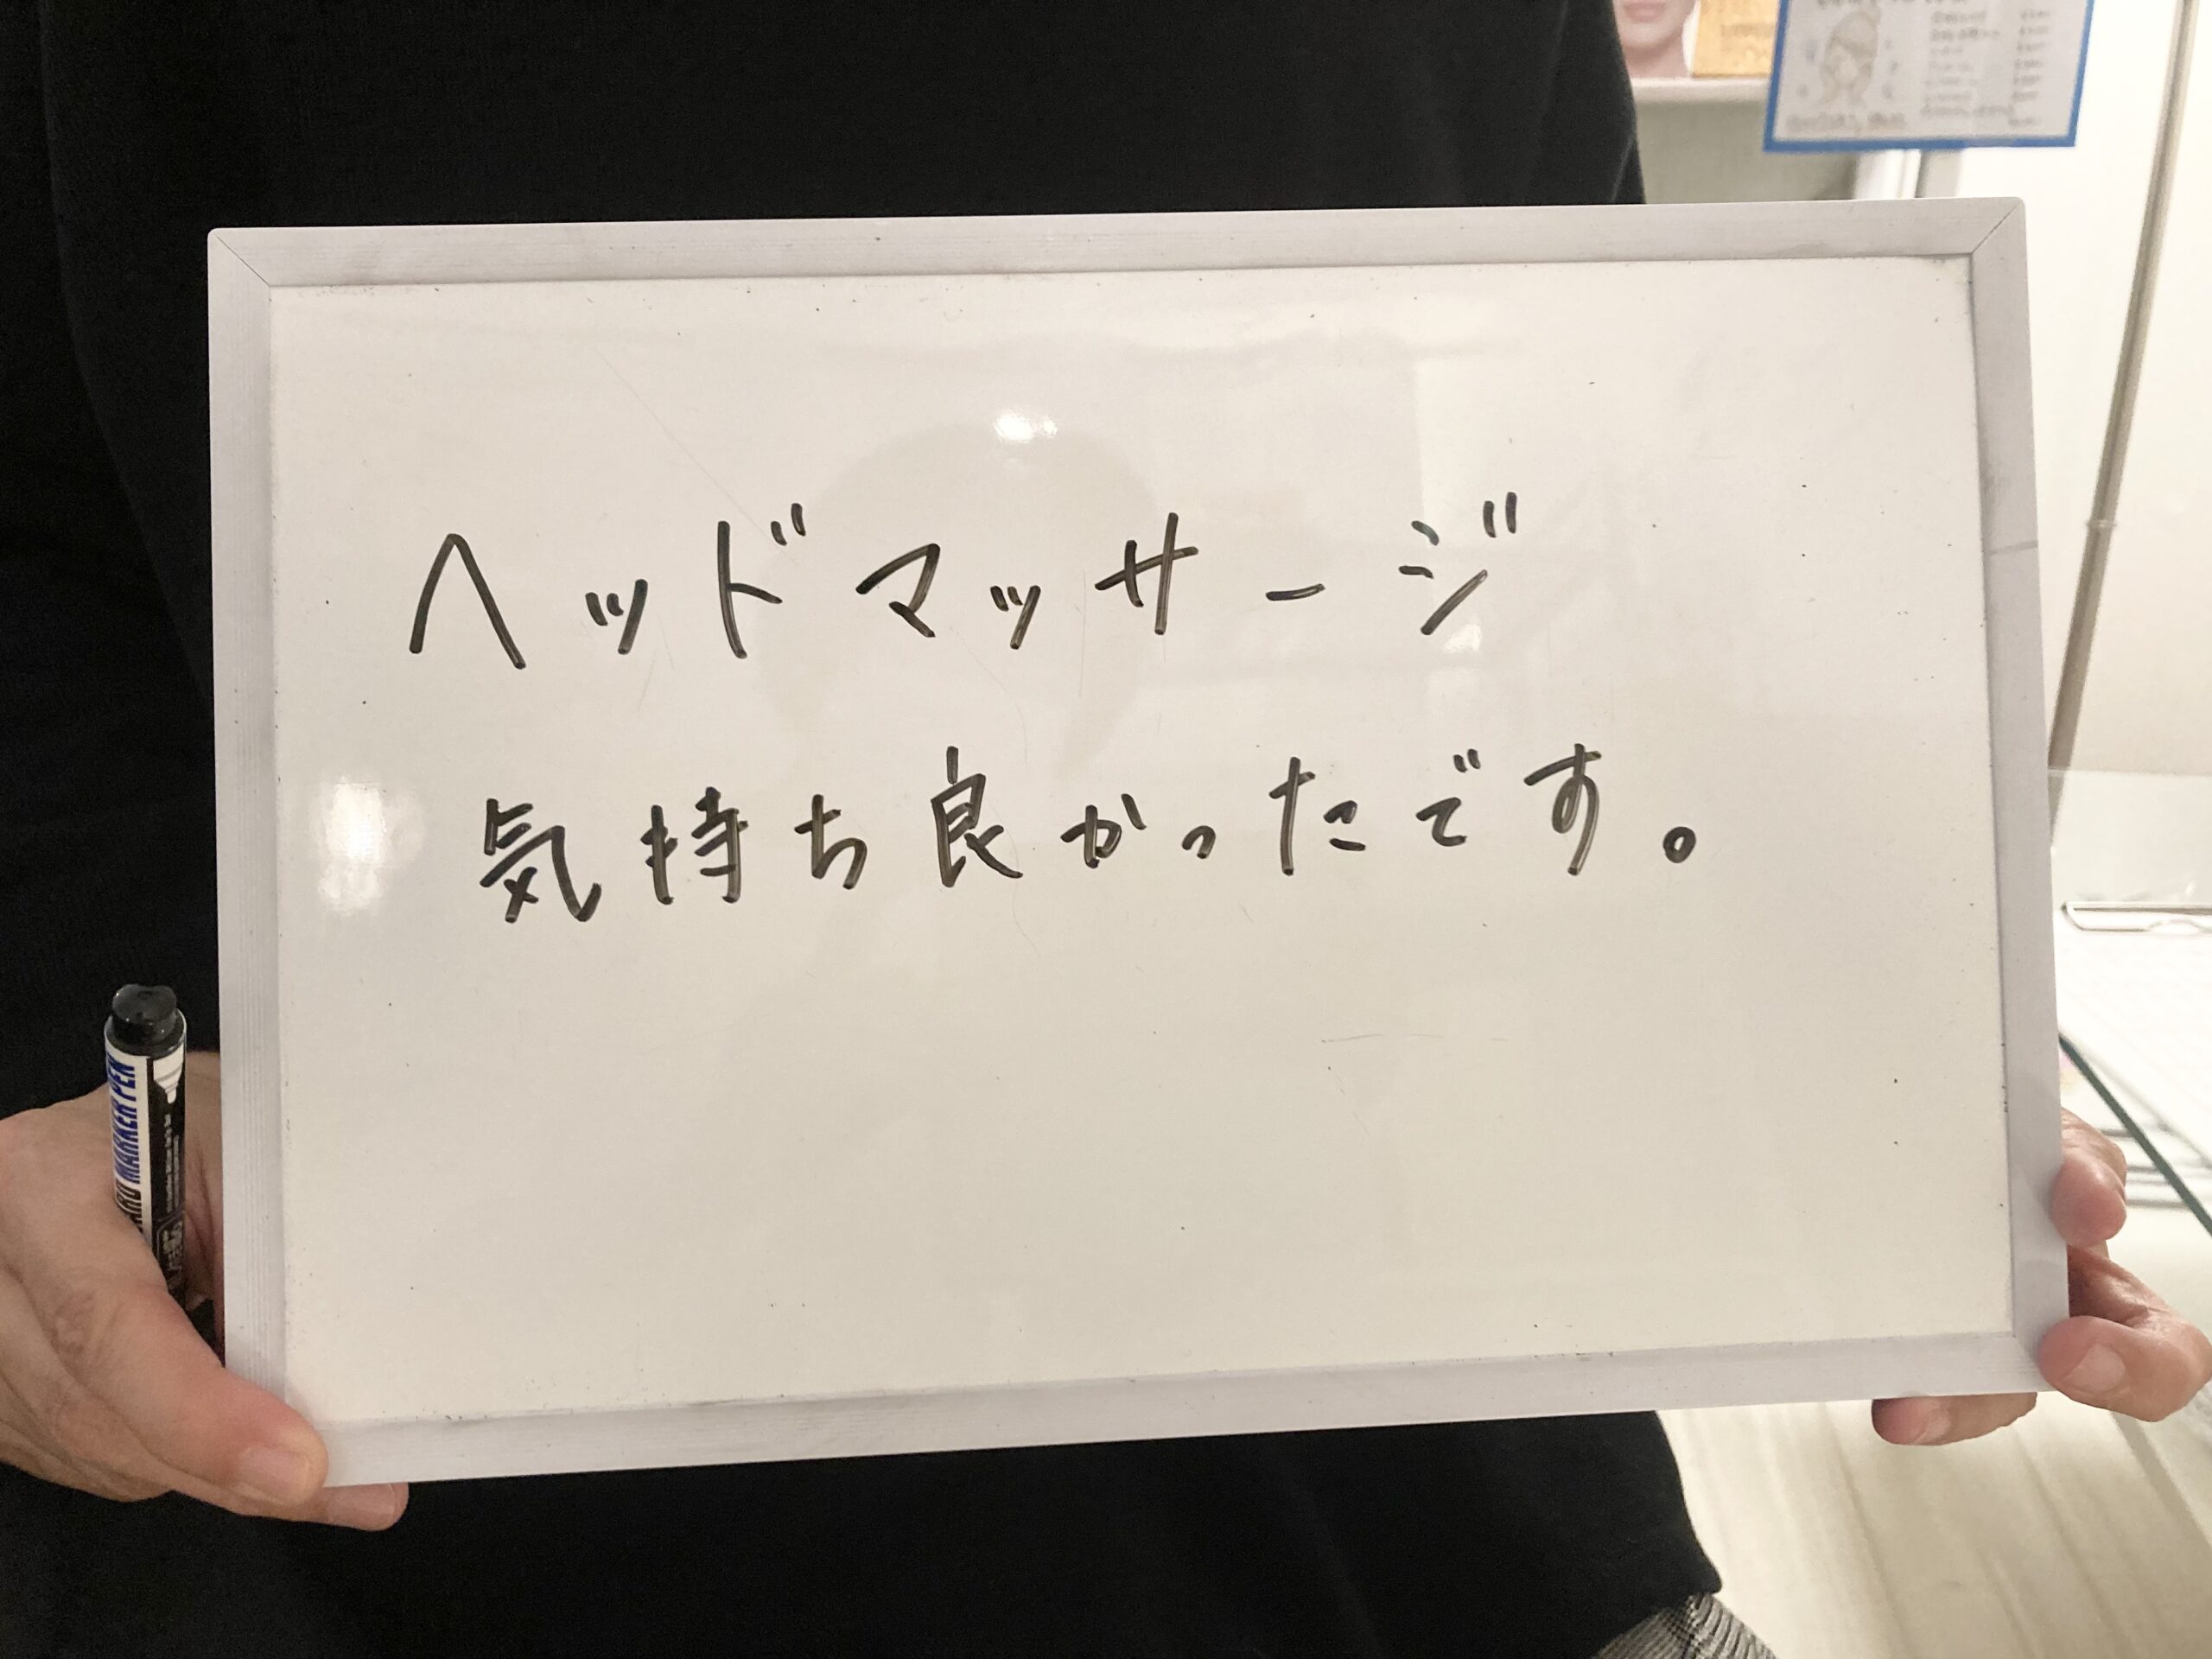 ヘッドマッサージ
気持ち良かったです。
MARKER PEN